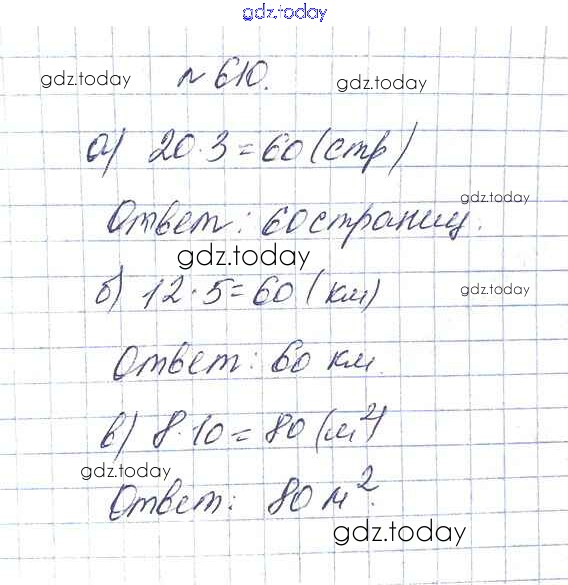 gdz.today
gdz.today
№ 610.
gdz.today
а) 20·3=60 (стр)
gdz.today
Ответ: 60 страниц.
gdz.today
б) 12·5=60 (км)
gdz.today
Ответ: 60 км.
в) 8·10=80 (м²)
gdz.today
Ответ: 80 м².
gdz.today